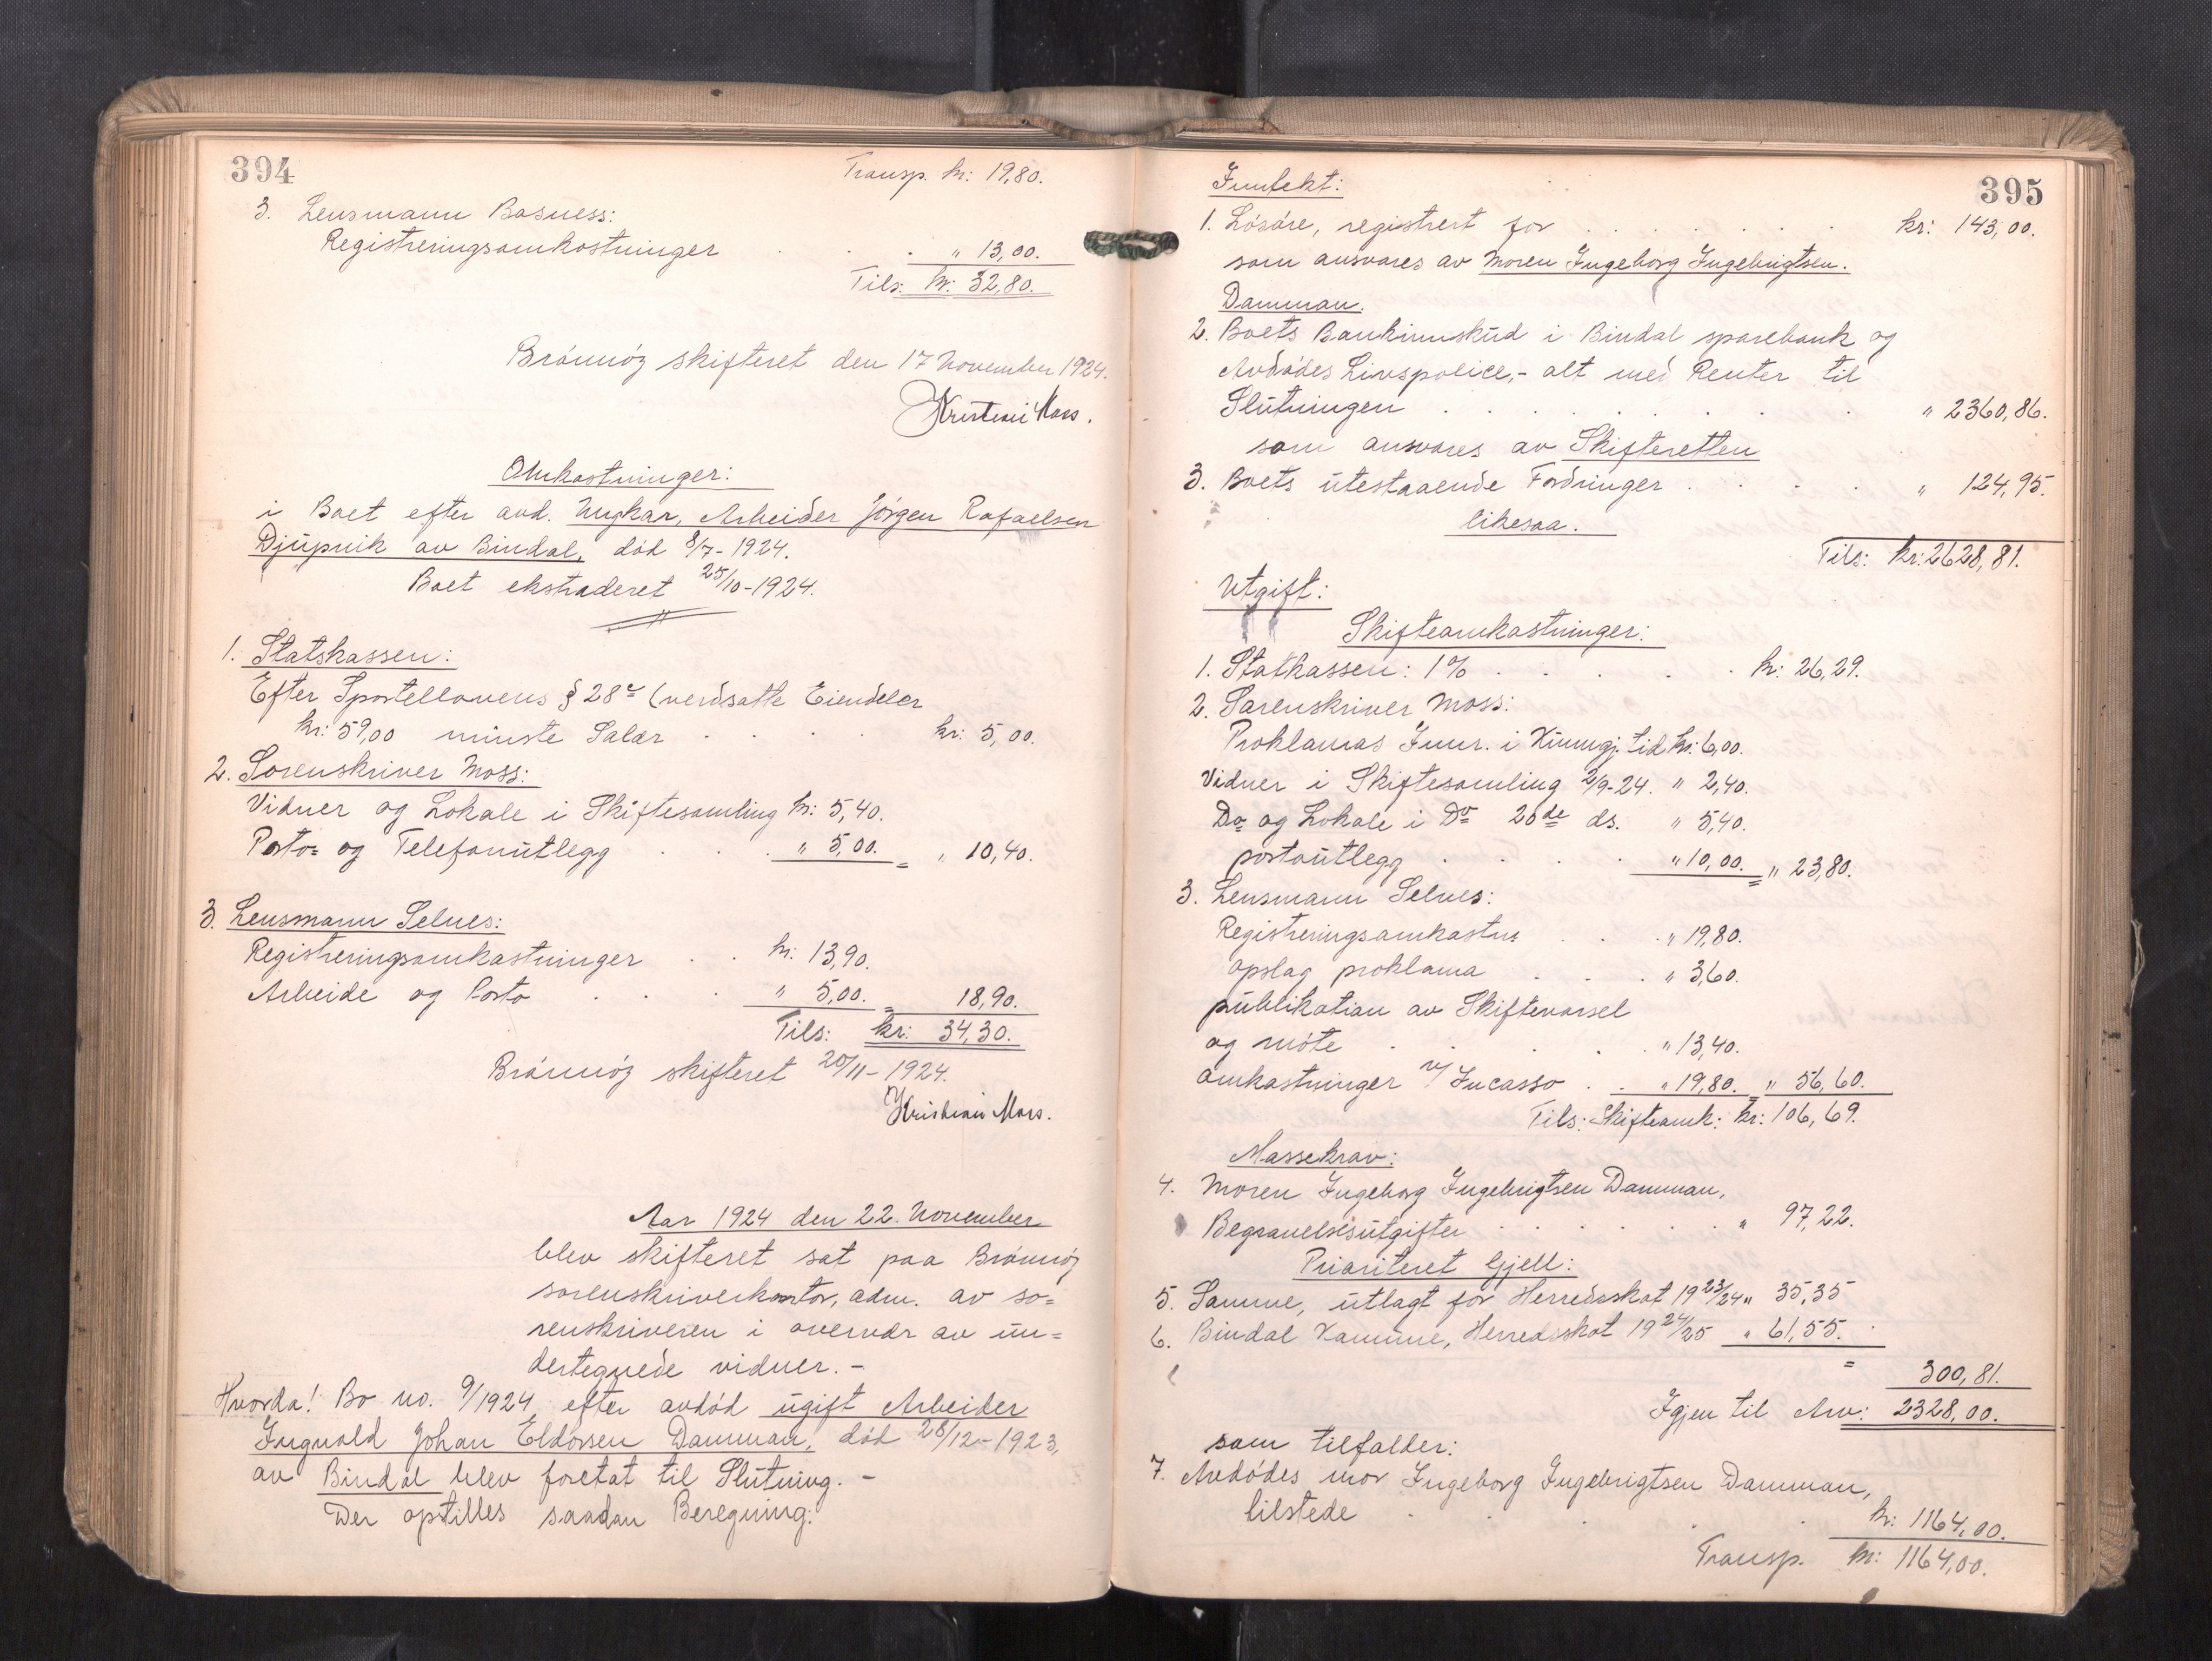 394
Transp. kr: 19,80.
3. Lensmann Basness:
Registreringsomkostninger . . . " 13,00.
Tils: kr: 32,80.
Brönnöy skifteret den 17 November 1924.
Kristian Moss.
Omkostninger:
i Boet efter avd. Ungkar, Arbeider Jörgen Rafaelsen
Djupvik av Bindal, död 8/7-1924.
Boet ekstraderet 25/10-1924.
1. Statskassen:
Efter Sportellovens § 28 (verdsatte Eiendeler
kr: 59,00 minste Salær . . . . kr: 5,00.
2. Sorenskriver Moss:
Vidner og Lokale i Skiftesamling kr: 5,40.
Porto= og Telefonutlegg . . . " 5,00. = " 10,40.
3. Lensmann Selnes:
Registreringsomkostninger . . kr: 13,90.
Arbeide og Porto . . . " 5,00. = 18,90.
Tils: kr: 34,30.
Brönnöy skifteret 20/11-1924.
Kristian Moss.
Aar 1924 den 22. November
blev skifteret sat paa Brönnöy
sorenskriverkontor, adm. av so=
renskriveren i overvær av un=
dertegnede vidner.-
Hvorda! Bo no. 9/1924 efter avdöd ugift Arbeider
Ingvald Johan Eldorsen Damman, död 28/12-1923,
av Bindal blev foretat til Slutning.-
Der opstilles saadan Beregning:
395
Inntekt:
1. Lösöre, registrert for . . . . . . kr: 143,00.
som ansvares av Moren Ingeborg Ingebrigtsen.
Damman.
2. Boets Bankinnskud i Bindal sparebank og
Avdödes Livspolice,- alt med Renter til
Slutningen . . . . . . . . " 2360,86.
som ansvares av Skifteretten
3. Boets utestaaende Fordringer . . . . " 124,95.
likesaa.
Tils: kr: 2628,81.
Utgift:
Skifteomkostninger:
1. Statkassen: 1% . . . . . kr: 26,29.
2. Sorenskriver Moss:
Proklamas Innr. i Kunngj. tid kr: 6,00.
Vidner i Skiftesamling 2/9-24. " 2,40.
Do og Lokale i Do 26de ds. " 5,40.
portoutlegg . . . . " 10,00. = " 23,80.
3. Lensmann Selnes:
Registreringsomkostn: . . . " 19,80.
opslag proklama . . . " 3,60.
publikation av Skiftevarsel
og möte . . . . . " 13,40.
omkostninger v/ Incasso . . " 19,80. = " 56,60.
Tils: Skifteomk: kr: 106,69.
Massekrav:
4. Moren Ingeborg Ingebrigtsen Damman,
Begravelsesutgifter . . . . . . " 97,22.
Prioriteret Gjell:
5. Samme, utlagt for Herredsskat 1923/24 " 35,35
6. Bindal Kommune, Herredsskat 1924/25 " 61,55.
= 300,81.
Igjen til Arv: 2328,00.
som tilfalder:
7. Avdödes mor Ingeborg Ingebrigtsen Damman,
tilstede . . . . kr: 1164,00.
Transp. kr: 1164,00.